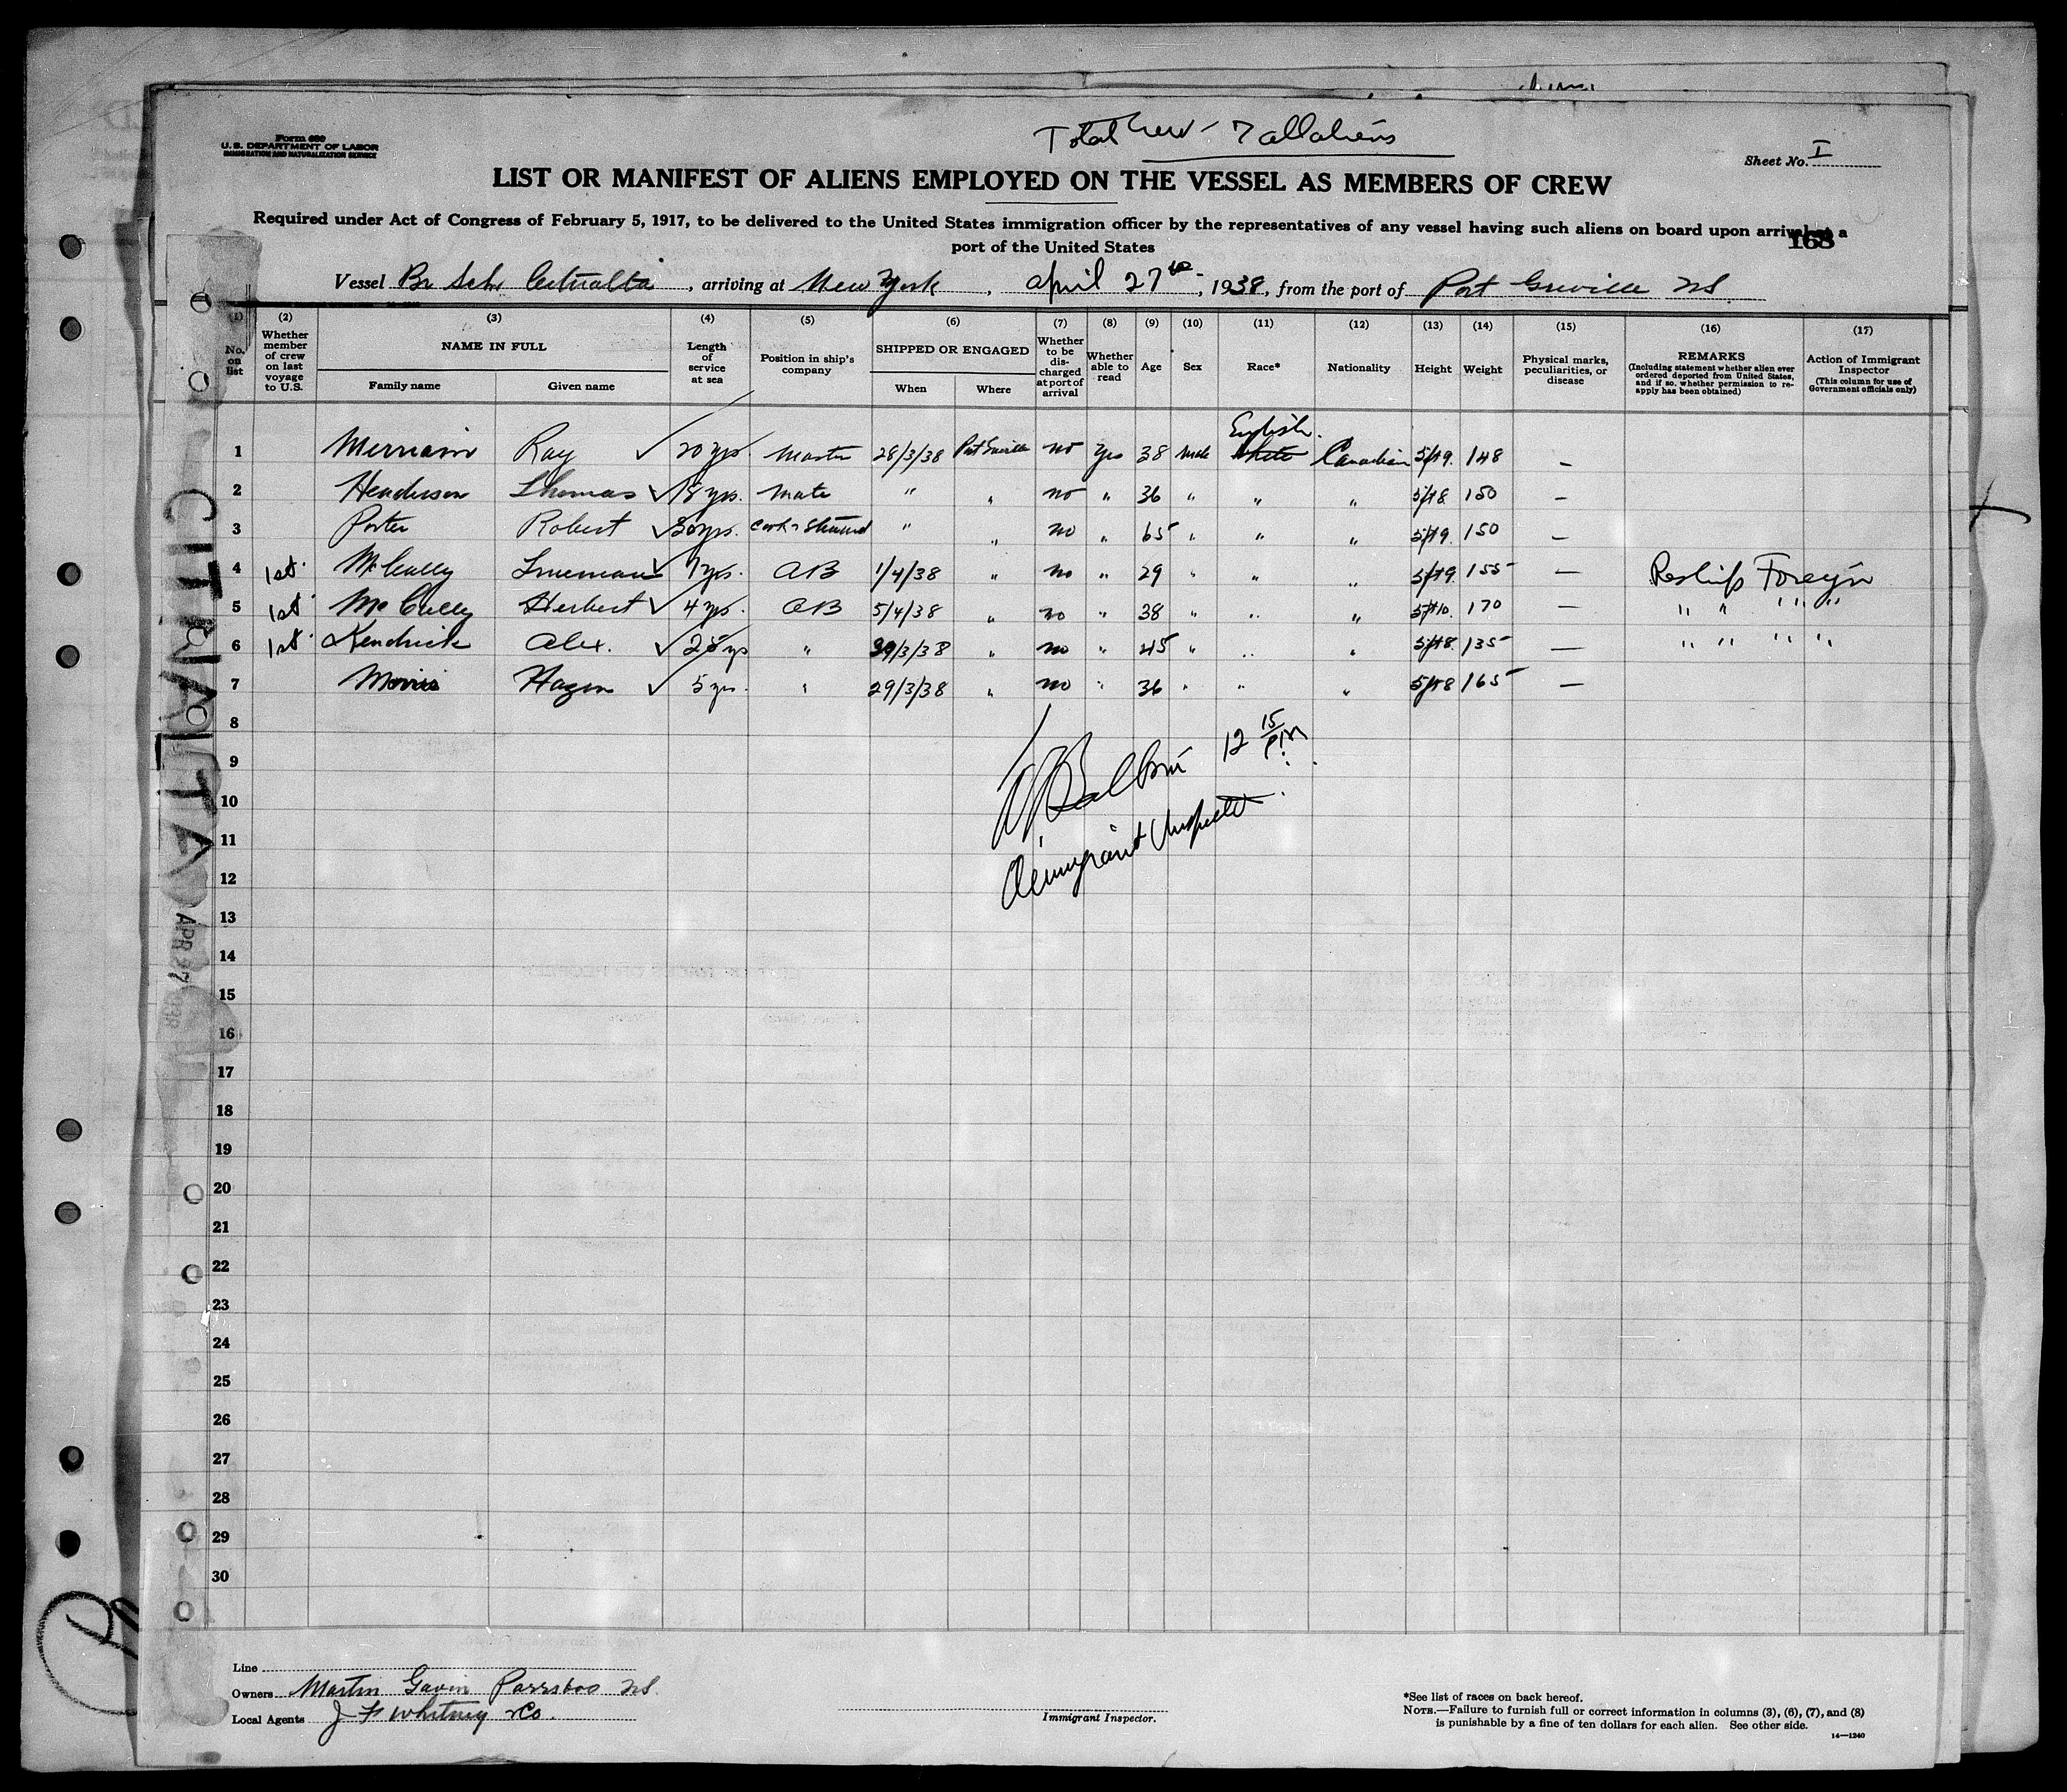 Form 680
U. S. DEPARTMENT OF LABOR
IMMIGRATION AND NATURALIZATION SERVICE
Total Crew - 7 all aliens
Sheet No. I
LIST OR MANIFEST OF ALIENS EMPLOYED ON THE VESSEL AS MEMBERS OF CREW
Required under Act of Congress of February 5, 1917, to be delivered to the United States immigration officer by the representatives of any vessel having such aliens on board upon arrival at a
port of the United States
168
Vessel Br Schr Citnalta, arriving at New York, April 27th, 1938, from the port of Port Greville NS.
(1) (2) (3) (4) (5) (6) (7) (8) (9) (10) (11) (12) (13) (14) (15) (16) (17)
No. on list Whether member of crew on last voyage to U.S. NAME IN FULL Family name Given name Length of service at sea Position in ship's company SHIPPED OR ENGAGED When Where Whether to be discharged at port of arrival Whether able to read Age Sex Race* Nationality Height Weight Physical marks, peculiarities, or disease REMARKS (Including statement whether alien ever ordered deported from United States, and if so, whether permission to reapply has been obtained) Action of Immigrant Inspector (This column for use of Government officials only)
English
1 Merriam Ray 20 yrs. Master 28/3/38 Port Greville no Yes 38 Male White Canadian 5/19 148 —
2 Henderson Thomas 18 yrs. Mate " " no " 36 " " " 5/18 150 —
3 Porter Robert 30 yrs. Cook & Steward " " no " 65 " " " 5/19 150 —
4 1st McCully Trueman 7 yrs. AB 1/4/38 " no " 29 " " " 5/19 155 — Reships Foreign
5 1st McCully Herbert 4 yrs. AB 5/4/38 " no " 38 " " 170 — " " " "
6 1st Kendrick Alex. 25 yrs " 29/3/38 " no " 45 " " " 5/18 135 — " " " "
7 Morris Hazen 5 yrs. " 29/3/38 " no " 36 " " " 5/18 165 —
8
12 15 P.M.
9
10
Immigrant Inspector
11
12
13
14
15
16
17
18
19
20
21
22
23
24
25
26
27
28
29
30
CITNALTA
APR 27 1938
Line
Owners Martin Gavin Parrsboro NS.
Local Agents J F Whitney & Co.
Immigrant Inspector.
*See list of races on back hereof.
NOTE.—Failure to furnish full or correct information in columns (3), (6), (7), and (8)
is punishable by a fine of ten dollars for each alien. See other side.
14—1240